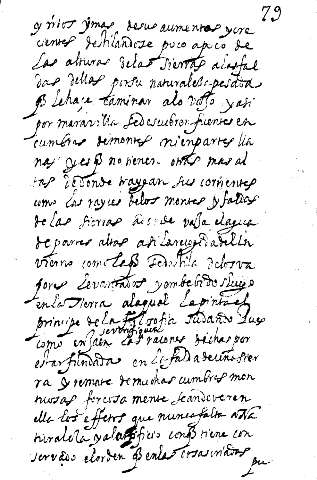 79
y rrios y mas de sus aumentos y cre
cientes destilandose poco a poco de
las alturas de las sierras a las fal
das dellas por su naturaleza pesada
q le haze caminar a lo vajo y asi
por maravilla se descubren fuentes en
cumbres de montes ni en partes lla
nas y es q no tienen otras mas al
tas de donde traygan sus corrientes
como las rayces de los montes y faldas
de las sierras do de vaja el agua
de partes altas asi la recogida del in
vierno como la q se destila de los va
pores levantados y embebidos
en la tierra a la qual la pinto el
principe de la filosofia
como en Jaen las raçones dichas por
estar fundada en la falda de una sier
ra y remate de muchas cumbres mon
tuossas forçosa mente se an de ver en
ella los effetos que nunca falta a Na
turaleza y al artificio con q tiene con
servado el orden q en las cosas criadas
pu